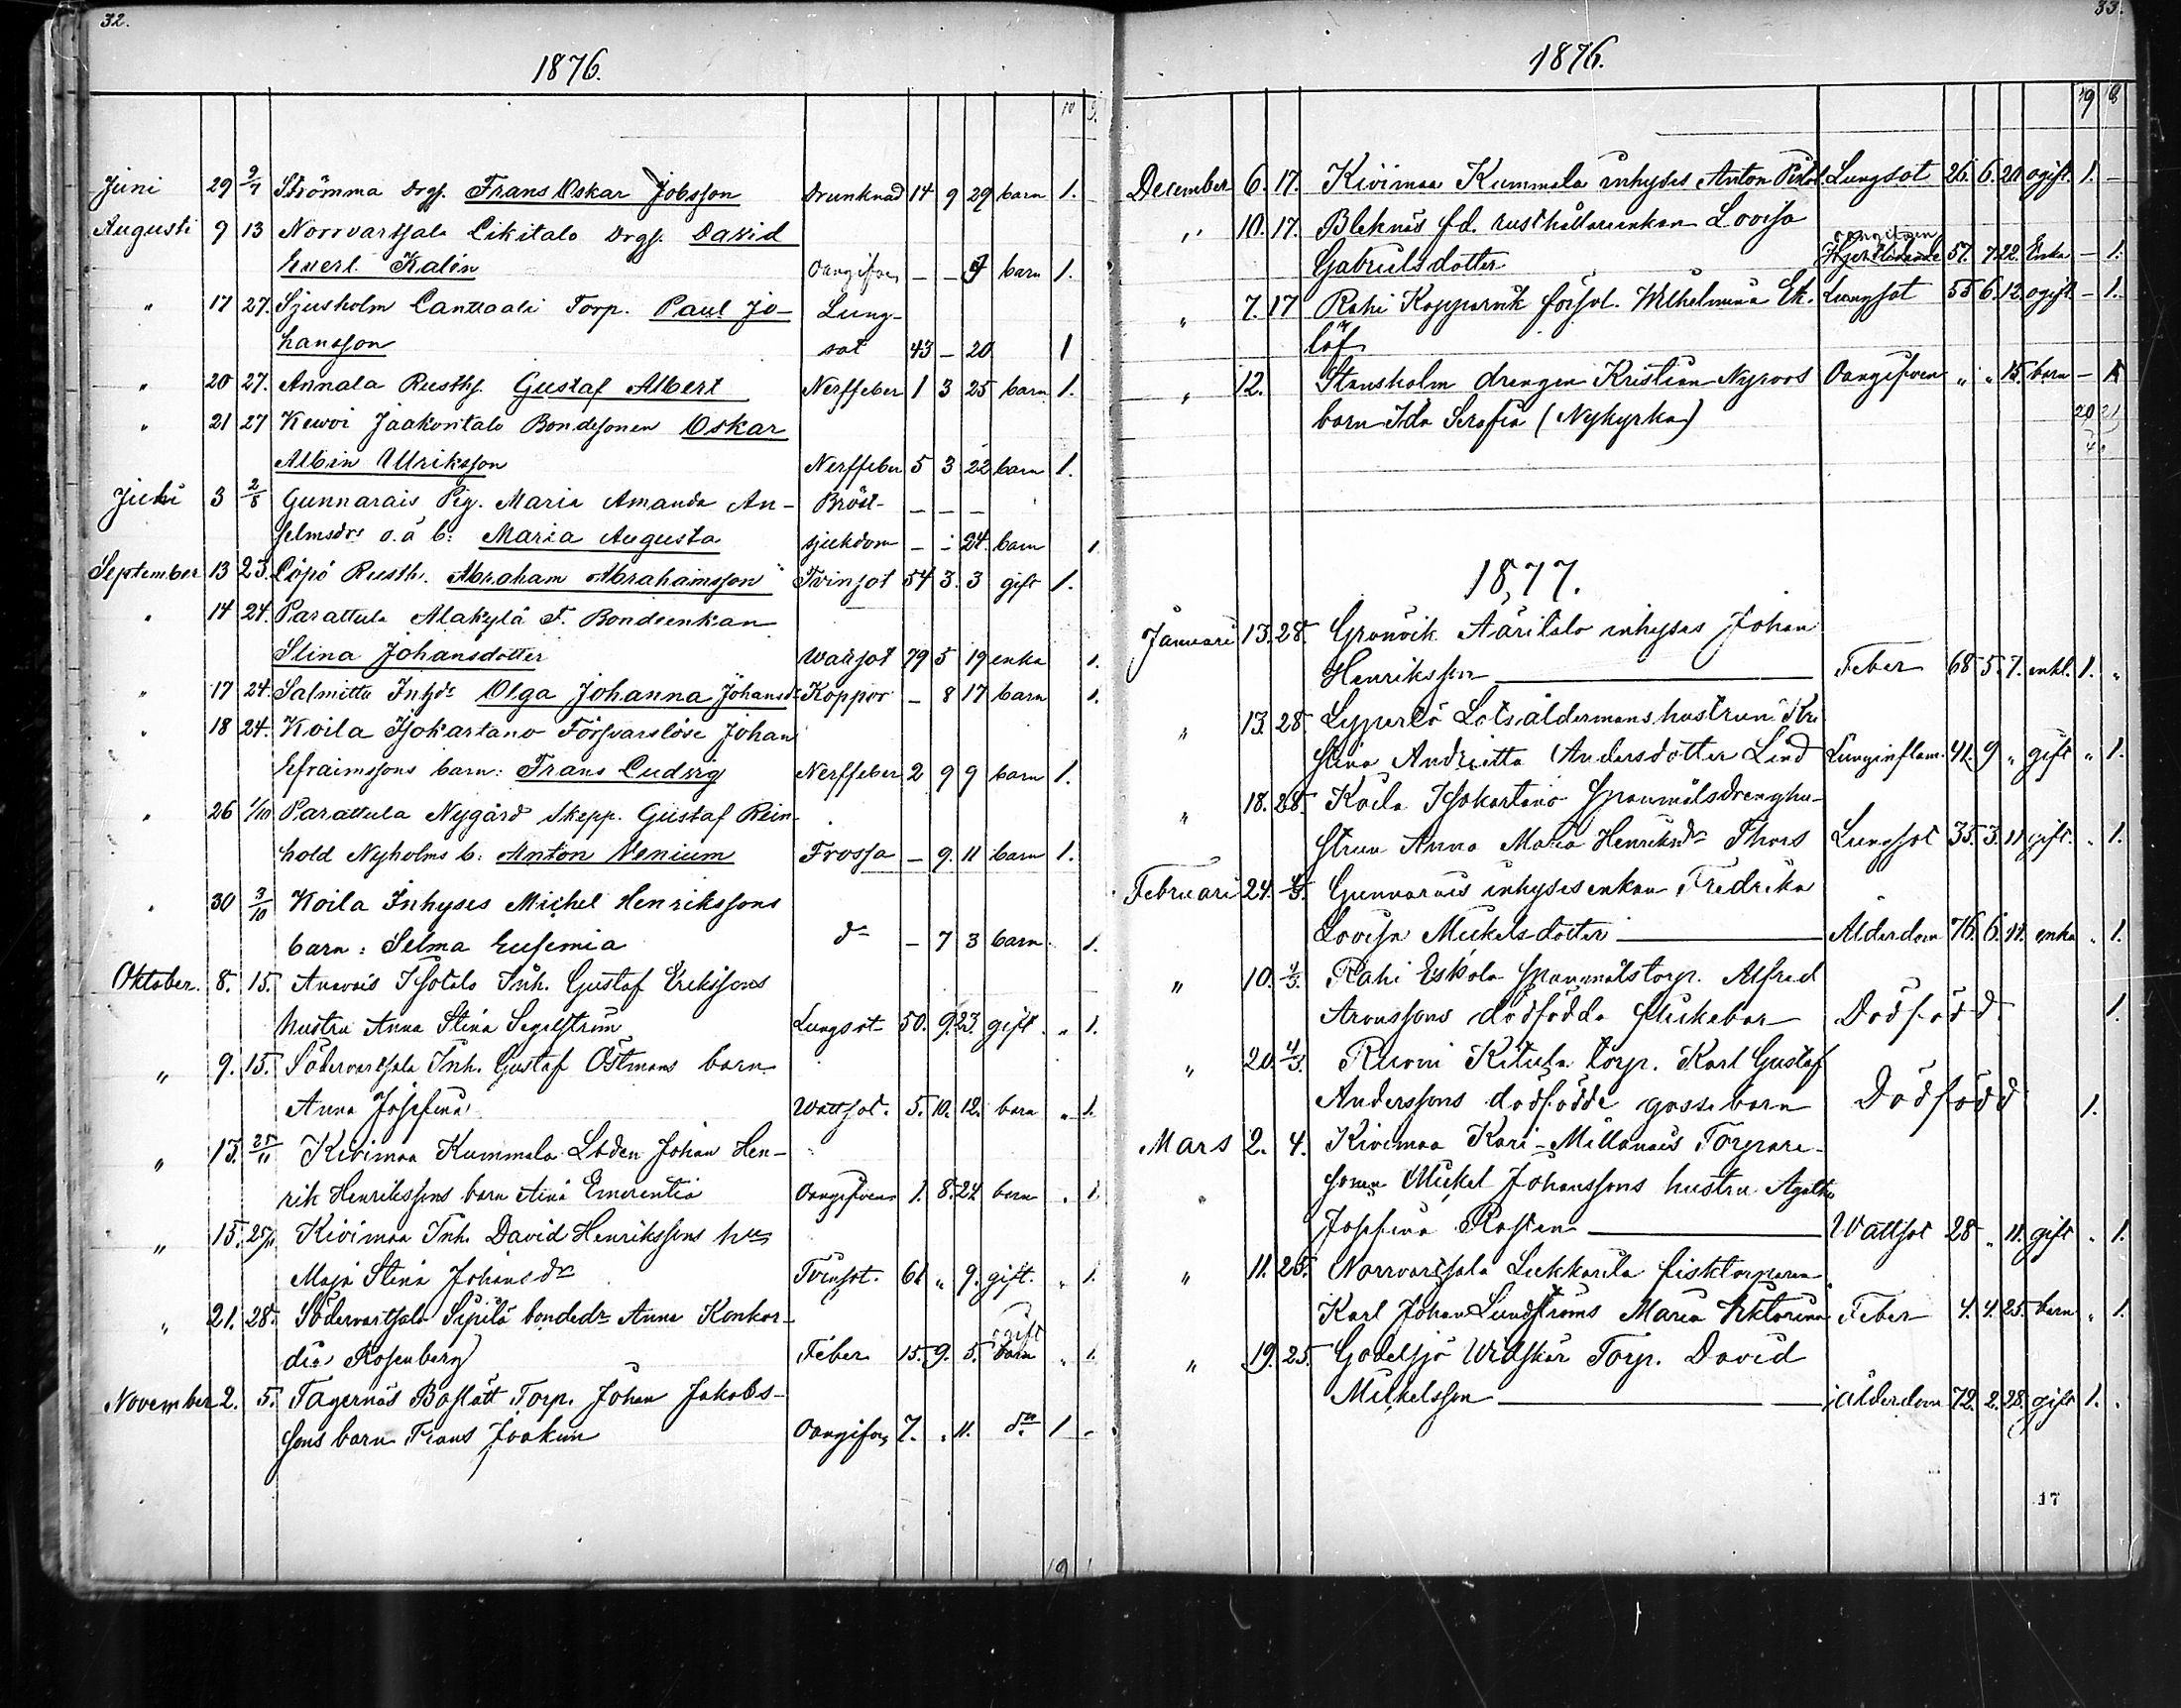 32.
1876.
10 9.
Juni 29 2/7 Strömma Drgs. Frans Oskar Jobsson Drunknad 14 9 29 barn 1.
Augusti 9 13 Norrvartsala Likitalo Drgs. David
Everl. Kalén Oangifven — — 9 barn 1.
" 17 27. Sjusholm Panttaali Torp. Paul Jo- Lung-
hansson sot 43 — 20 1
" 20 27. Annala Rusths. Gustaf Albert Nerffeber 1 3 25 barn 1.
" 21 27 Kewoi Jaakontalo Bondesonen Oskar
Albin Ulriksson Nerffeber 5 3 22 barn 1.
Juli 3 2/8 Gunnarais Pig. Maria Amanda An- Bröst- — — —
selmsdrs o.ä b: Maria Augusta sjukdom — — 24. barn 1.
September 13 23. Löpö Rusth. Abraham Abrahamsson Tvinsot 54 3. 3 gift 1.
" 14 24. Parattula Alakylä F. Bondeenkan
Stina Johansdotter Wattsot 79 5 19 enka 1.
" 17 24. Salmittu Inhs Olga Johanna Johansdr Koppor — 8 17 barn 1.
" 18 24. Koila Isokartano Försvarslöse Johan
Efraimssons barn: Frans Ludvig Nerffeber 2 9 9 barn 1.
" 26 1/10 Parattula Nygård Skepp. Gustaf Rein-
hold Nyholms b: Anton Venium Frossa — 9. 11 barn 1.
" 30 3/10 Koila Inhyses Michel Henrikssons
barn: Selma Eufemia do — 7 3 barn 1.
Oktober. 8. 15. Anavais Isotalo Inh. Gustaf Erikssons
hustru Anna Stina Segelström Lungsot 50. 9. 23. gift " 1.
" 9. 15. Södervartsala Inh. Gustaf Östmans barn
Anna Josefina Wattsot. 5. 10. 12. barn " 1.
" 13. 25/11 Kivimaa Kummala Lbden Johan Hen-
rik Henrikssons barn Aina Emerentia Oangifven 1. 8. 24. barn " 1.
" 15. 25/11 Kivimaa Inh. David Henrikssons hu
Maja Stina Johansdr Tvinsot. 61 " 9. gift. " 1.
" 21. 28. Södervartsala Sipilä bondedr Anna Konkor- ogift
dia Rosenberg Feber 15. 9. 5. barn " 1.
November 2. 5. Tagernäs Baslätt Torp. Johan Jakobs-
sons barn Frans Joakim Oangifven 7. " 11. do 1 -
19 1
33.
1876.
19 18
December 6. 17. Kivimaa Kummala inhyses Anton Lungsot 26. 6. 20 ogift. 1. —
" 10. 17. Bleknäs fd. rusthållareenkan Lovisa oangifven
Gabrielsdotter 57. 7. 22. Enka — 1.
" 7. 17 Rahi Kopparvik försvl. Wilhelmina Ek- Lungsot 55 6. 12. ogift — 1.
löf
" 12. Stensholm drengen Kristian Nyroos Oangifven " " 15. barn — 1
barn Ida Serafia (Nykyrka)
20 21
1877.
Januari 13. 28. Grönvik Äärilalo inhyses Johan
Henriksson — Feber 68. 5. 7. enkl. 1. "
" 13. 28. Lypertö Lotsåldermanshustrun Kri
stina Andrietta Andersdotter Lind Lunginflam. 41. 9 " gift " 1.
" 18. 28. Koila Isokartano Spanmålsdrenghu-
strun Anna Maria Henriksdr Thors Lungsot 35. 3. 11 gift. " 1.
Februari 24. 4/3. Gunnarais inhysesenkan Fredrika
Lovisa Mickelsdotter — Ålderdom 76. 6. 11. enka " 1.
" 10. 4/3. Rahi Eskola Spanmålstorp. Alfred
Aronssons dödfödda flickebar Dödfödd 1.
" 20. 4/3. Ruoni Kitula torp. Karl Gustaf
Anderssons dödfödde gossebarn Dödfödd 1.
Mars 2. 4. Kivimaa Kari-Millanais Torpare-
sonen Mickel Johanssons hustru Agatha
Josefina Rosten — Wattsot 28 " 11. gift " 1.
" 11. 25. Norrvartsala Lukkarila fisktorparen
Karl Johan Lundströms Maria Viktorina Feber 4. 4. 25. barn " 1.
" 19. 25. Godelsjö Widskär Torp. David
Mickelsson — ålderdom 72. 2. 28. gift 1. "
17